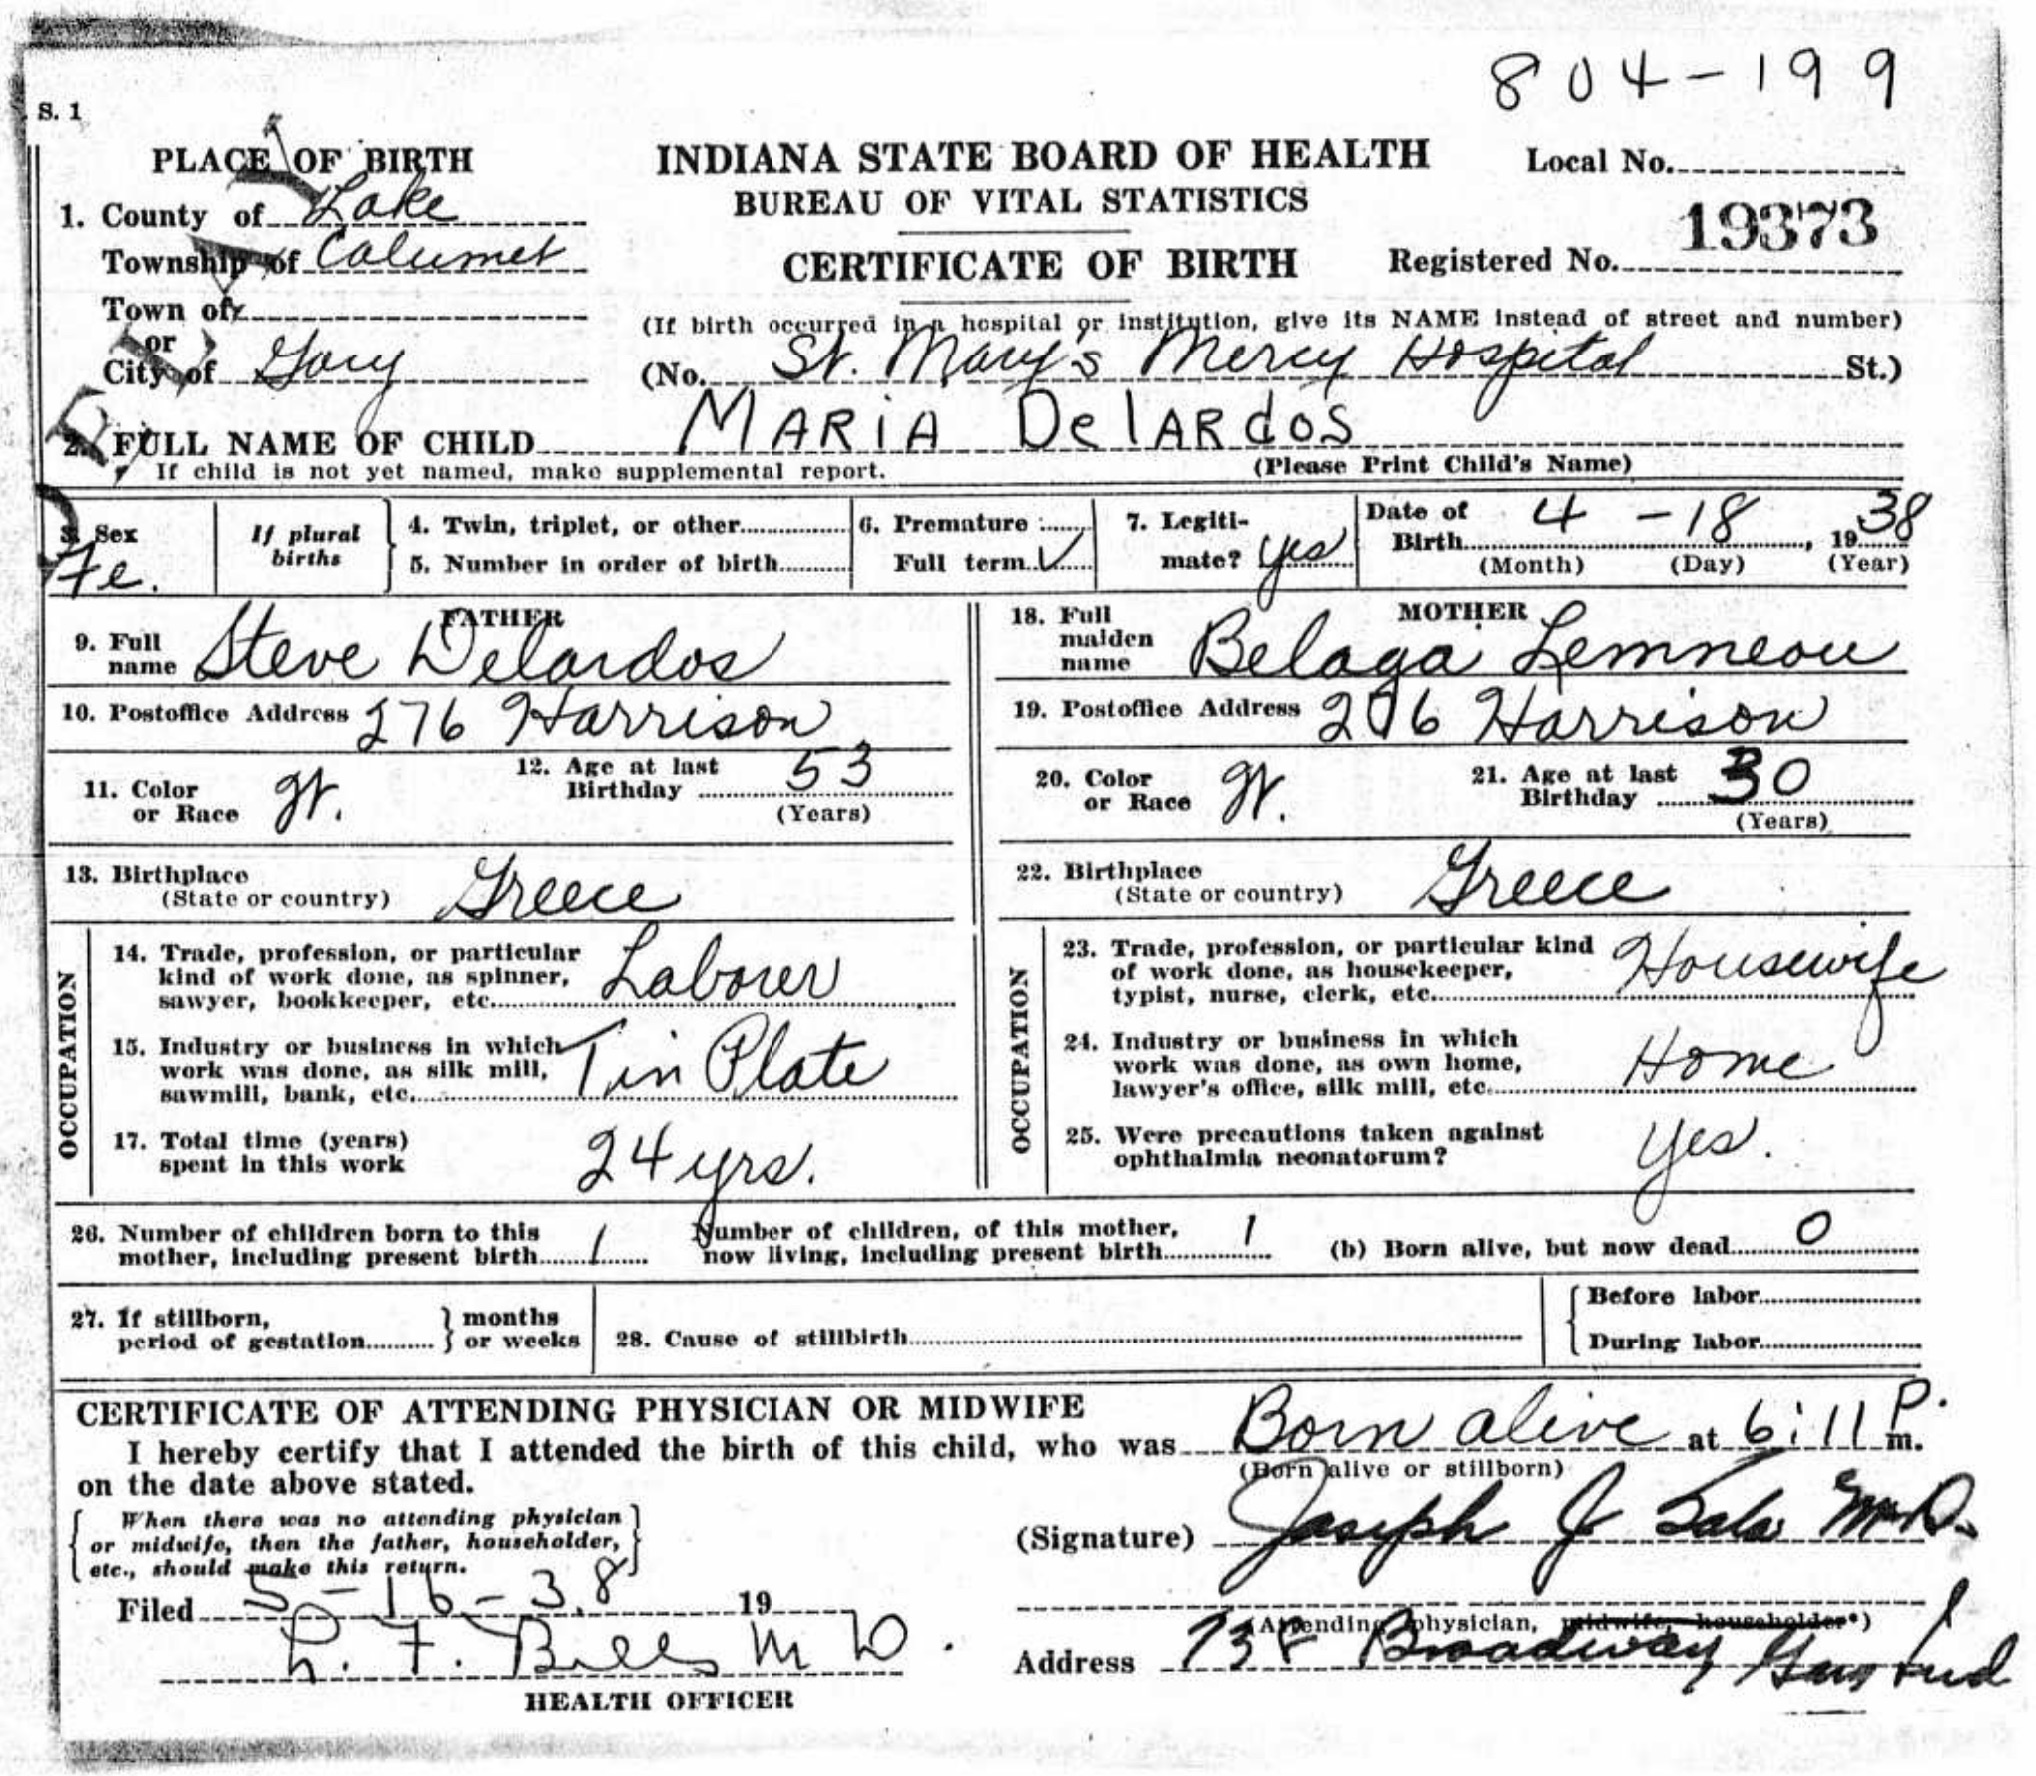 804-199
S. 1
PLACE OF BIRTH
INDIANA STATE BOARD OF HEALTH
Local No.
BUREAU OF VITAL STATISTICS
1. County of Lake
19373
Township of Calumet
CERTIFICATE OF BIRTH
Registered No.
Town of
or
(If birth occurred in a hospital or institution, give its NAME instead of street and number)
City of Gary
(No. St. Mary's Mercy Hospital St.)
2. FULL NAME OF CHILD MARiA DelARdos
If child is not yet named, make supplemental report.
(Please Print Child's Name)
3. Sex Fe.
If plural births
4. Twin, triplet, or other
5. Number in order of birth
6. Premature
Full term ✓
7. Legitimate? Yes
Date of Birth 4 - 18, 1938
(Month) (Day) (Year)
FATHER
9. Full name Steve Delardos
10. Postoffice Address 276 Harrison
11. Color or Race W.
12. Age at last Birthday 53
(Years)
13. Birthplace
(State or country) Greece
OCCUPATION
14. Trade, profession, or particular
kind of work done, as spinner,
sawyer, bookkeeper, etc. Laborer
15. Industry or business in which
work was done, as silk mill,
sawmill, bank, etc. Tin Plate
17. Total time (years)
spent in this work 24 yrs.
MOTHER
18. Full maiden name Belaga Lemneou
19. Postoffice Address 276 Harrison
20. Color or Race W.
21. Age at last Birthday 30
(Years)
22. Birthplace
(State or country) Greece
OCCUPATION
23. Trade, profession, or particular kind
of work done, as housekeeper,
typist, nurse, clerk, etc. Housewife
24. Industry or business in which
work was done, as own home,
lawyer's office, silk mill, etc. Home
25. Were precautions taken against
ophthalmia neonatorum? Yes.
26. Number of children born to this
mother, including present birth 1
Number of children, of this mother,
now living, including present birth 1
(b) Born alive, but now dead 0
27. If stillborn,
period of gestation } months or weeks
28. Cause of stillbirth
Before labor
During labor
CERTIFICATE OF ATTENDING PHYSICIAN OR MIDWIFE
I hereby certify that I attended the birth of this child, who was Born alive at 6:11 P. m.
on the date above stated.
(Born alive or stillborn)
When there was no attending physician
or midwife, then the father, householder,
etc., should make this return.
(Signature) Joseph J M.D.
Filed 5-16-38 19
(Attending physician, midwife, householder*)
L. F. Bills M D.
Address Broadway Gary Ind
HEALTH OFFICER